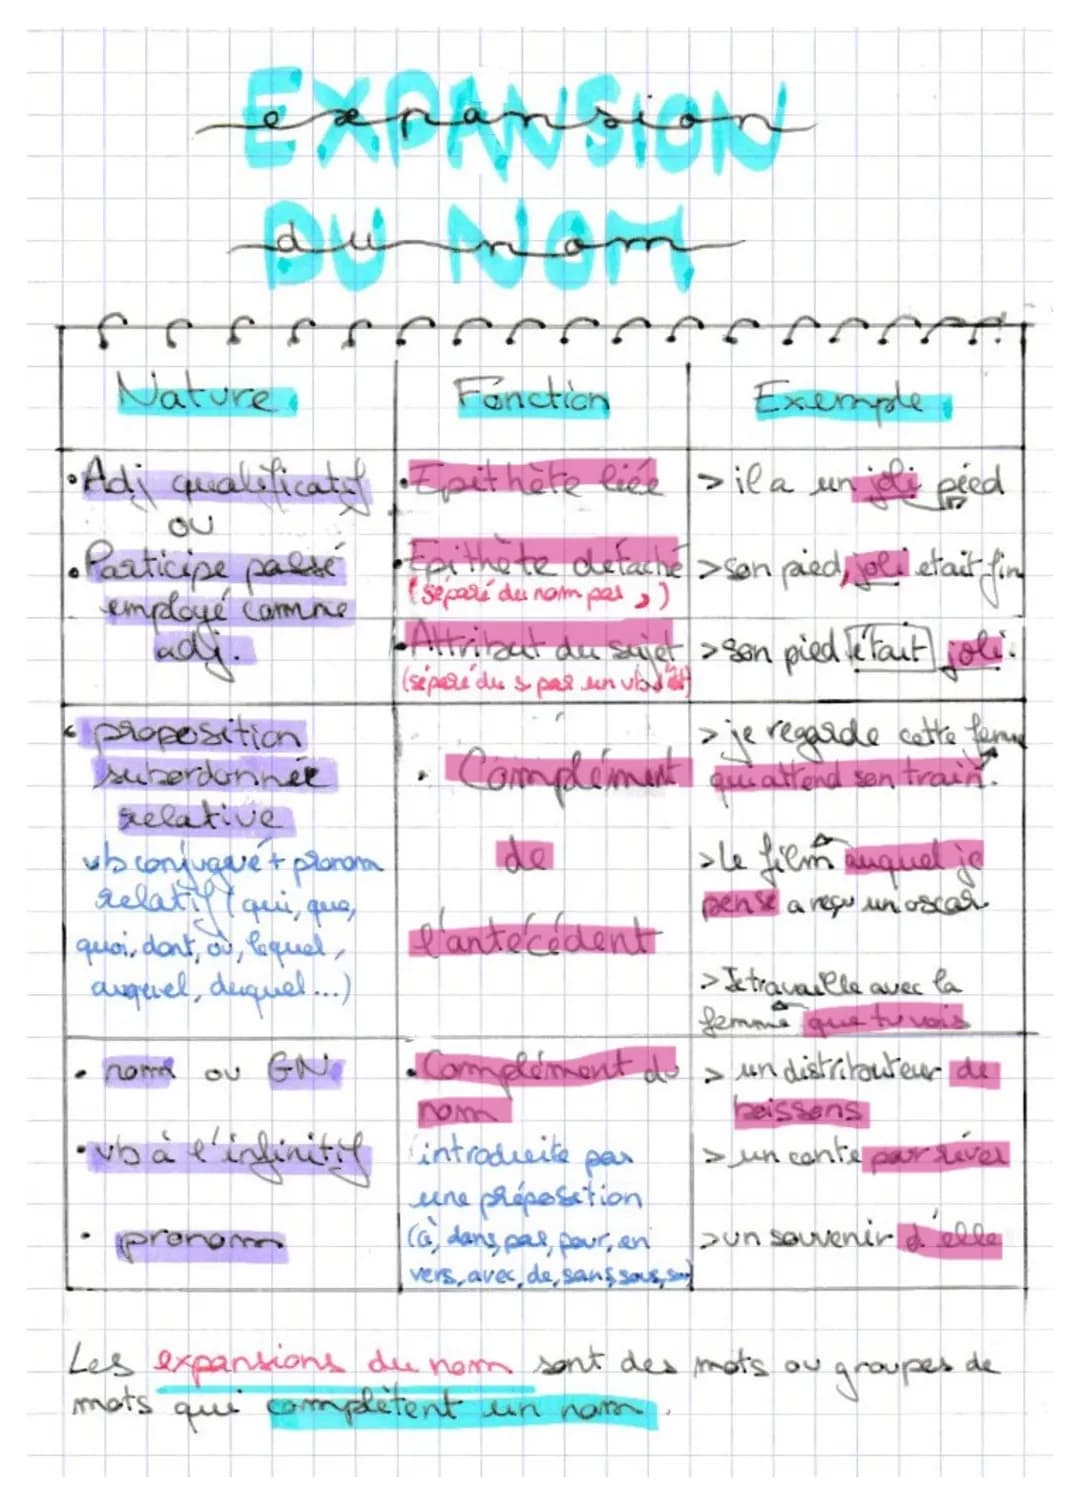 EXPANSION
expansion
DU NOM
du nom
Nature
Fonction
Exemple
• Adj qualificatif
ou
• Participe passé
employé comme
adj.
• Epithète liée
> il a un joli pied
• Epithète détaché
(séparé du nom par ,)
> son pied, joli etait fin
• Attribut du sujet
(séparé du s par un vb d'ét)
> Son pied était joli.
• proposition
subordonnée
relative
vb conjugué + pronom
relatif (qui, que,
quoi, dont, où, lequel,
auquel, duquel...)
• Complément
de
l'antécédent
> je regarde cette femme
qui attend son train.
> Le film auquel je
pense a reçu un oscar.
> Je travaille avec la
femme que tu vois
• nom ou GN
• vb à l'infinitif
• pronom
• Complément du
nom
introduite par
une préposition
(à, dans, par, pour, en
vers, avec, de, sans, sous,
> un distributeur de
boissons
> un conte pour rêver
> un souvenir d'elle
Les expansions du nom sont des mots ou groupes de
mots qui complètent un nom.